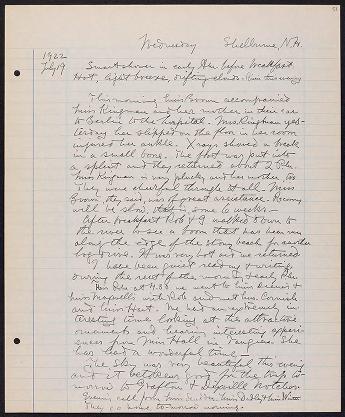 51
Wednesday Shelburne, N.H.
1922
July 19
Smart shower in early A.M. before breakfast
Hot, light breeze, drifting clouds. Rain this evening
This morning Miss Brown accompanied
Miss Kingman and her mother in their car
to Berlin to the hospital. Mrs. Kingman yes-
terday slipped on the floor in her room
injured her ankle. X rays showed a break
in a small bone. The foot was put into
a splint and they returned about 2 P.M.
Miss Kingman is very plucky and her mother, too
They were cheerful through it all. Miss
Brown they said, was of great assistance. Recovery
will be slow, some 6 weeks—
After breakfast Rob & I walked down to
the river to see a boom that was
along the edge of the stony beach for another
log drive. It was very hot and we returned
I have been quiet reading & writing
during the rest of the morning & early P.M.
This P.M. at 4.30 we went to Miss
with Rob and
and Miss Hunt. We had an extremely in-
teresting time looking at the attractive
ornaments and hearing interesting experi-
ences from Miss Hall in She
has had a wonderful time—
The sky was very beautiful this evening
and it betokens good for the trip to-
morrow to Grafton & Dixville Notches.
Evening call from
They go home to-morrow morning.